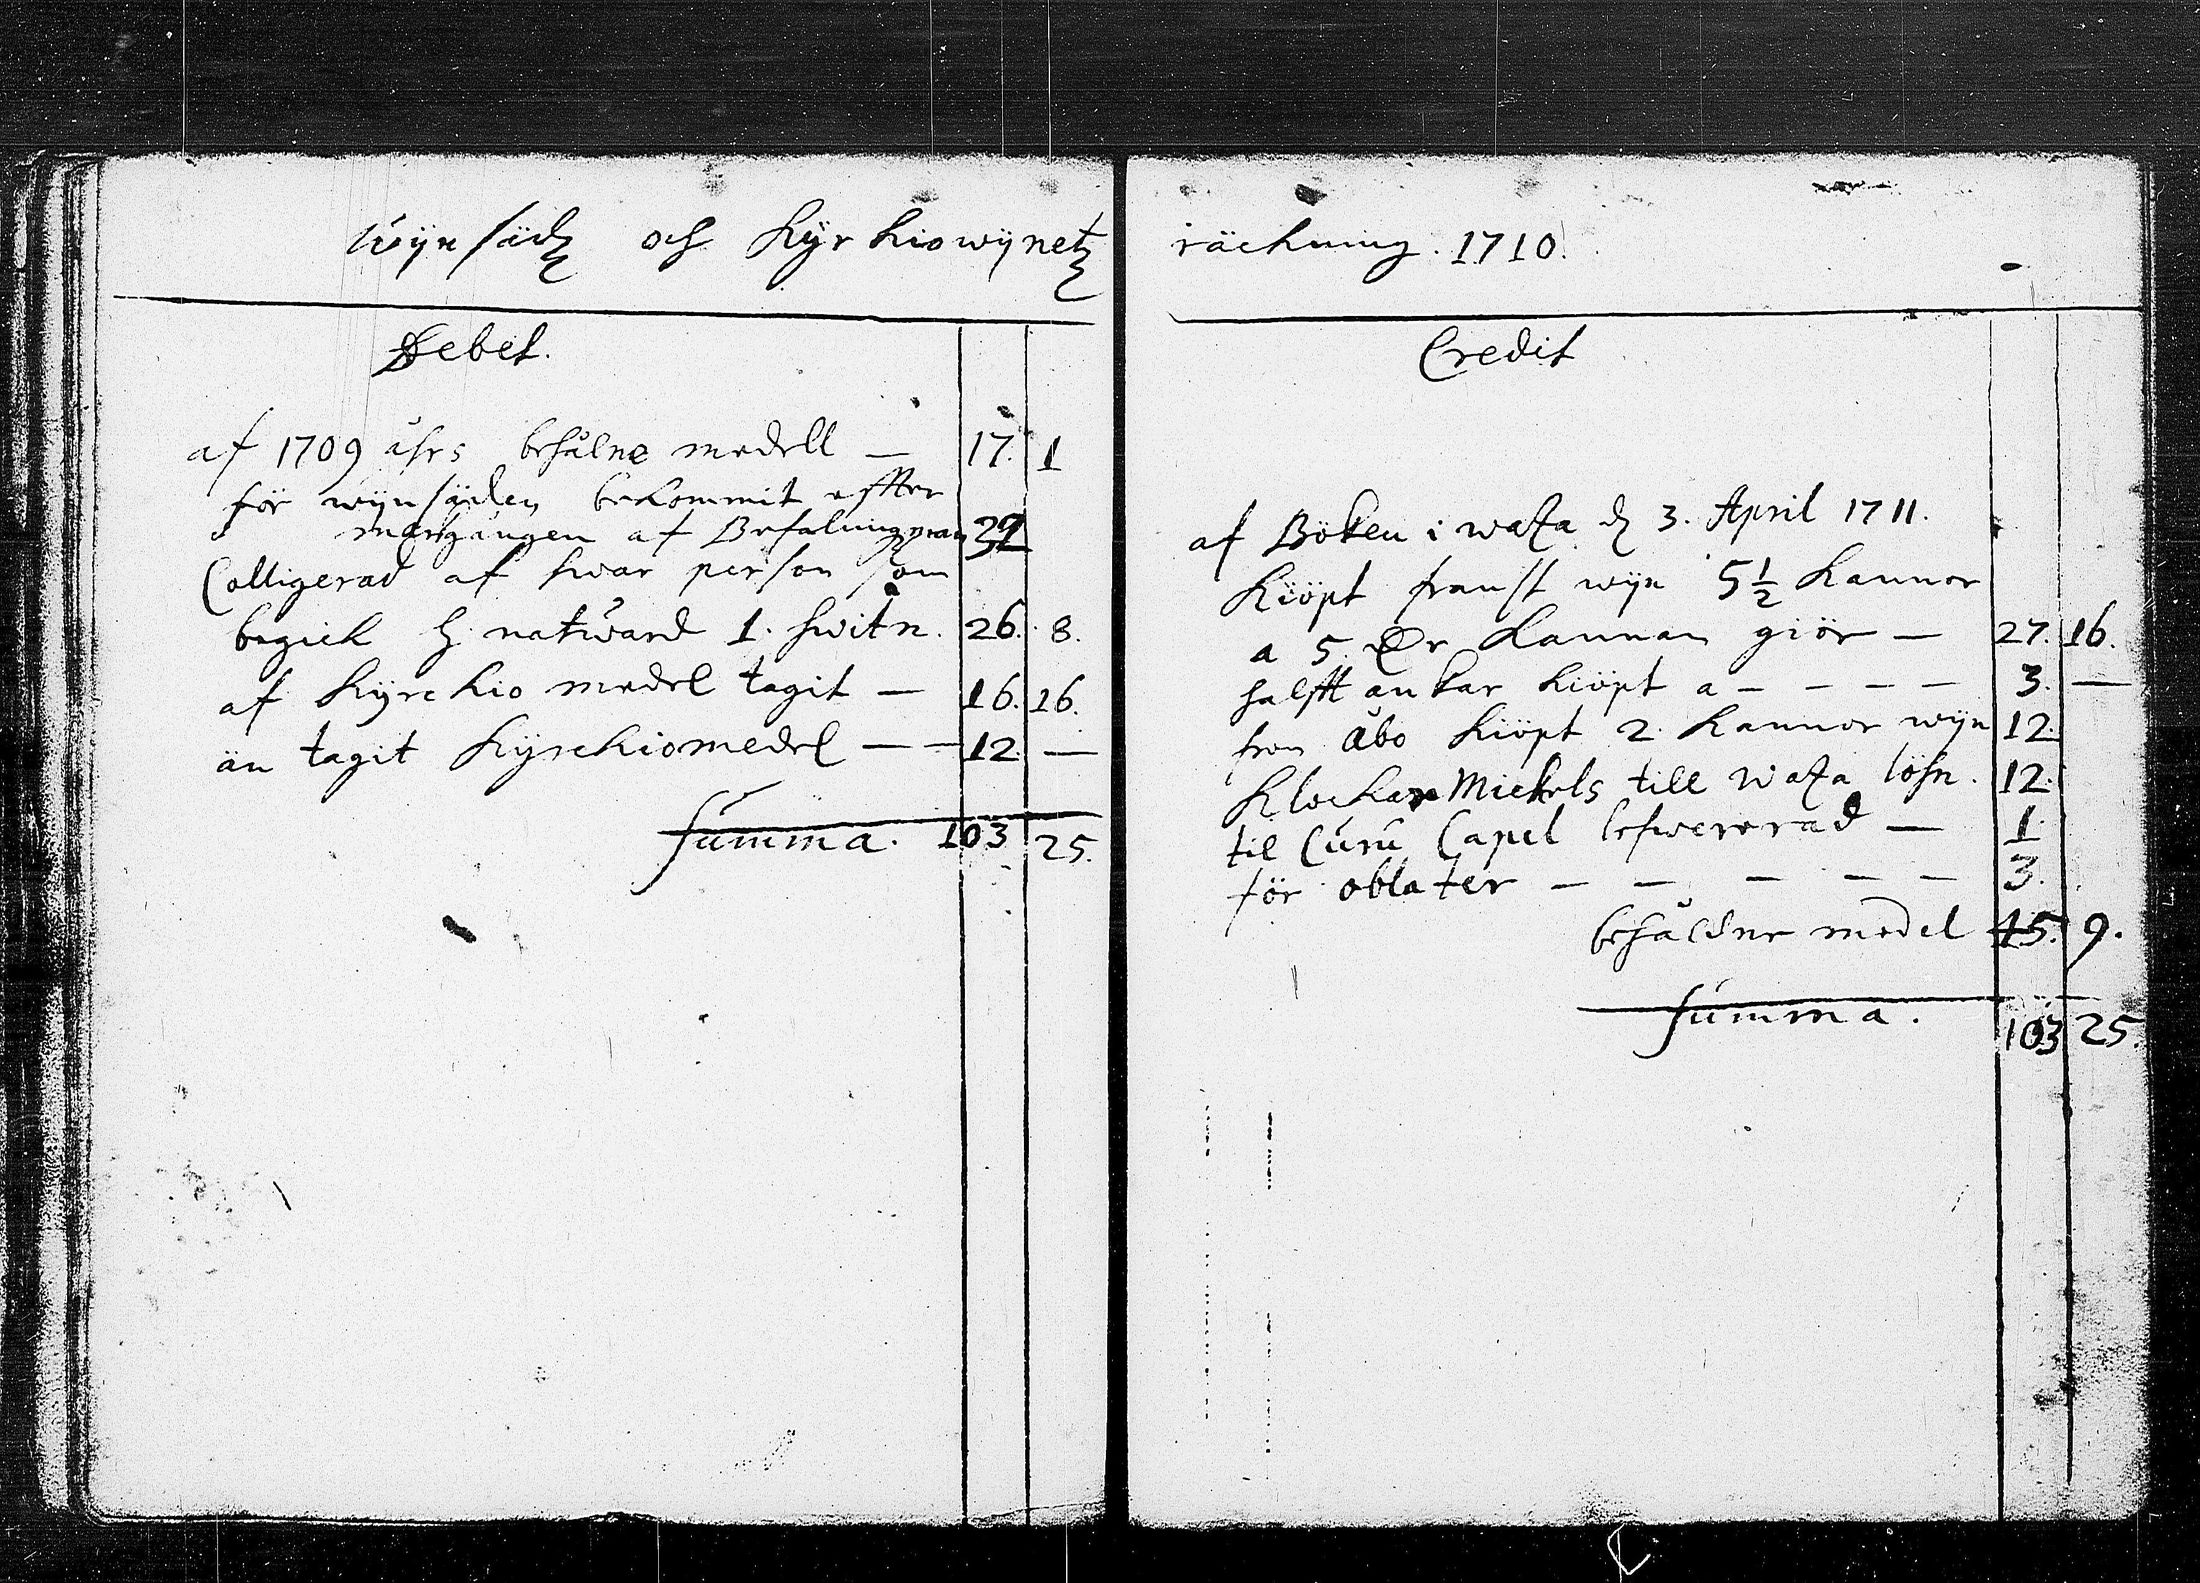 Wÿnsädz och Kÿrkiowijnetz
Debet.
af 1709 åhrs behålne medell — 17. 1
för wijnsäden bekommit effter
markgången af Befalningzman 32
Colligerad af hwar person som
begick h. natward 1. hwitn. 26. 8.
af Kÿrckio medel tagit — 16. 16.
än tagit Kÿrckiomedel — — 12. —
Summa. 103 25.
räckning. 1710.
Credit
af Böken i waza d 3. April 1711.
Kiöpt franst wijn 5 1/2 Kannor
a 5. Dr Kannan giör — 27. 16.
halfft ankar Kiöpt a — — — — 3. —
från Åbo Kiöpt 2. Kannor wijn 12.
Klockar Mickels till waza löhn. 12.
til Curu Capel lefwererad — 1.
för oblater — — — — — 3.
behåldne medel 45. 9.
Summa. 103 25.